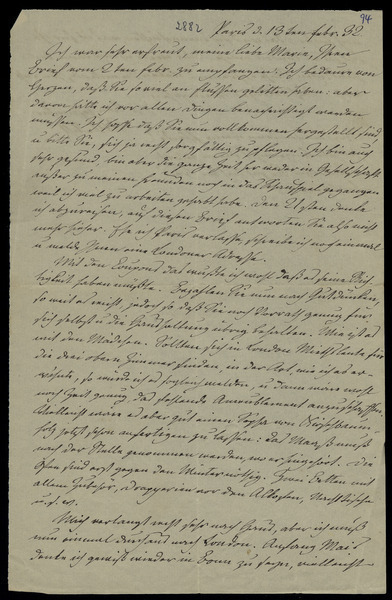 94
2882
Paris d. 13ten febr. 32
Ich war sehr erfreut, meine liebe Marie, Ihren
Brief vom 2ten febr. zu empfangen. Ich bedaure von
Herzen, daß Sie so viel an Flüssen gelitten haben: aber
davon hätte ich vor allen Dingen benachrichtigt werden
müssen. Ich hoffe daß Sie nun vollkommen hergestellt sind
u bitte Sie, sich ja recht sorgfältig zu pflegen. Ich bin auch
sehr gesund bin aber die ganze Zeit her weder in Gesellschaft
außer zu meinen Freunden noch in das Schauspiel gegangen
weil ich viel zu arbeiten gehabt habe. Den 21sten denke
ich abzureisen, auf diesen Brief antworten Sie also nicht
mehr hieher. Ehe ich Paris verlasse, schreibe ich noch einmal
u melde Ihnen eine Londoner Adresse.
Mit den Coupons das wußte ich wohl daß es seine Rich-
tigkeit haben mußte. Bezahlen Sie nun nach Gutdünken,
so weit es reicht, jedoch so daß Sie noch Vorrath genug für
sich selbst u die Haushaltung übrig behalten.
mit den Mädchen. Sollten sich in London Miethsleute für
die drei obern Zimmer finden, in der Art, wie ich es er-
wähnte, so würde ich es sogleich melden, u dann wäre wohl
noch Zeit genug, das fehlende Ameublement anzuschaffen.
Vielleicht wäre es aber gut einen Sopha von Nußbaum-
holz jetzt schon anfertigen zu lassen: das Maaß muß
nach der Stelle genommen werden, wo er hingehört. Die
Öfen sind erst gegen den Winter nöthig. Zwei Betten mit
allem Zubehör, Draperien vor den Alkoven, Nachttische
u. s. w.
Mich verlangt recht sehr nach Haus, aber ich muß
nun einmal durchaus nach London. Anfang Mai
denke ich gewiß wieder in Bonn zu seyn, vielleicht